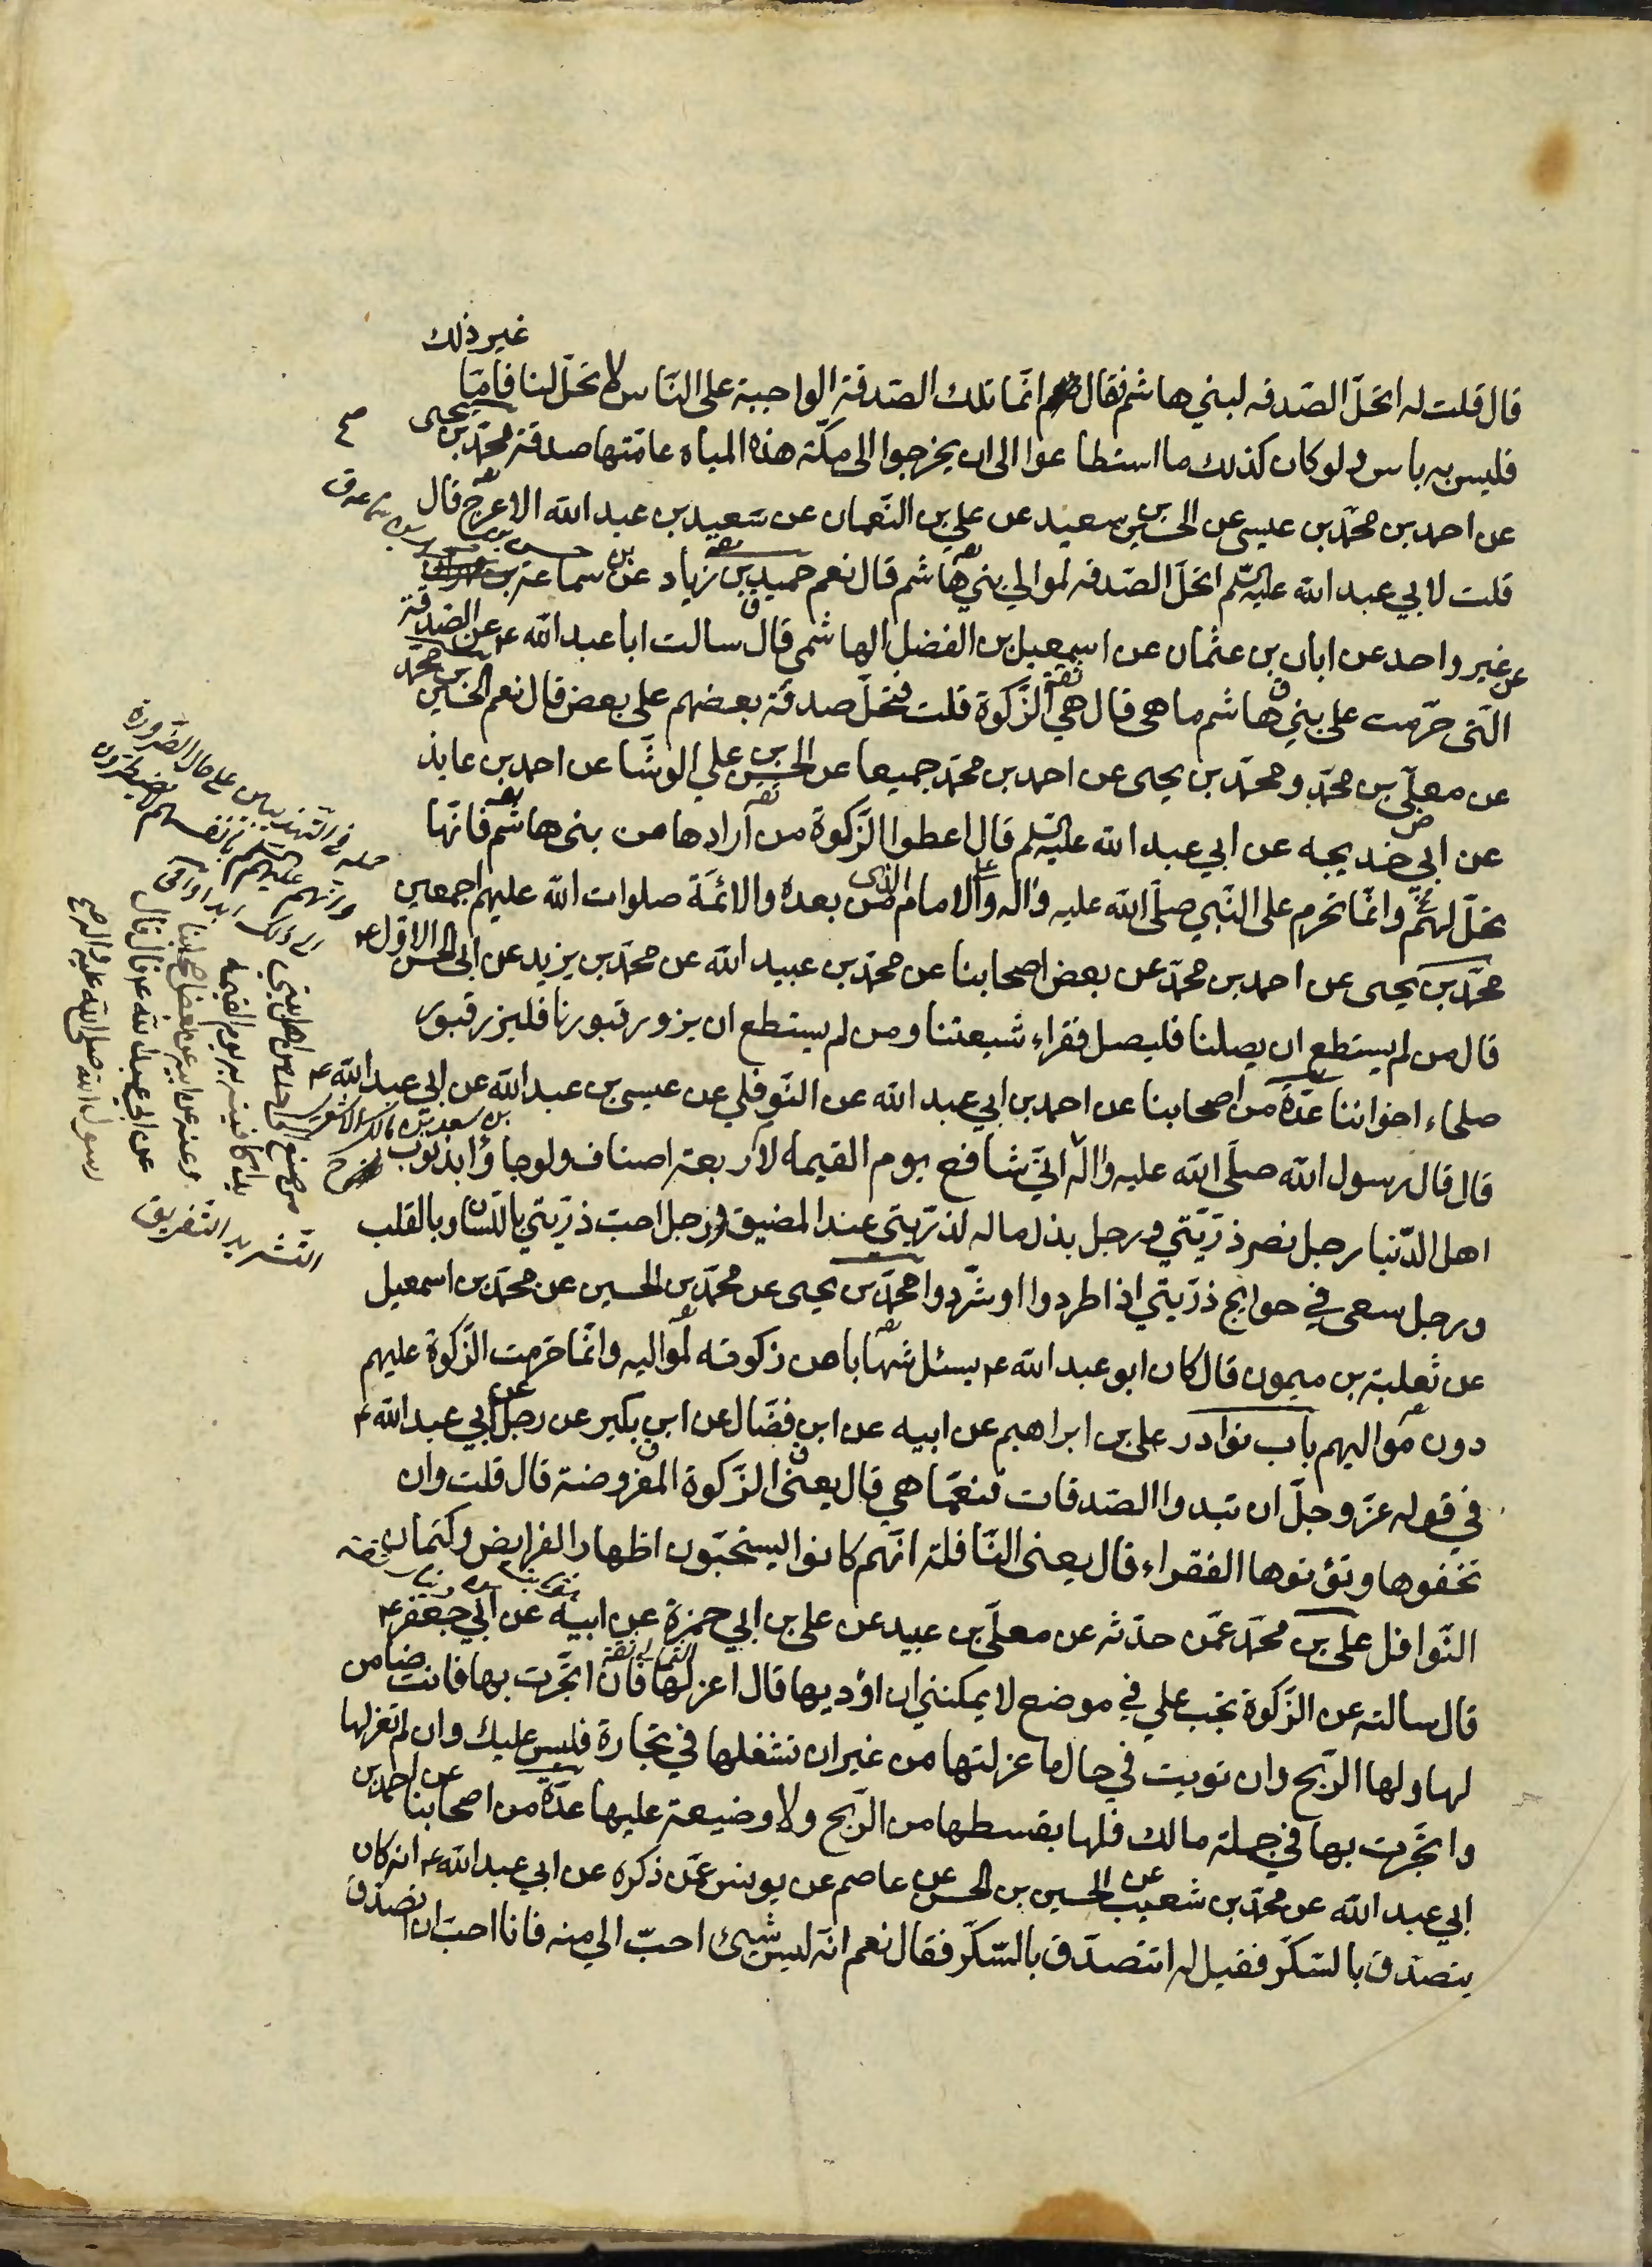 غير ذلك
قال قلت له اتحلّ الصّدقه لبني هاشم فقال انّما تلك الصّدقة الواجبة على النّاس لا تحلّ لنا فامّا
فليس به باس ولو كان كذلك ما استطاعوا الى ان يخرجوا الى مكّة هذه المياه عامّتها صدقة محمّد بن يحيى
عن احمد بن محمّد بن عيسى عن الحسين بن سعيد عن علي بن النّعمان عن سعيد بن عبد الله الاعرج قال
قلت لابي عبد الله عليه السّلم اتحلّ الصّدقه لموالي بني هاشم قال نعم حميد بن زياد عن بن سماعة
عن غير واحد عن ابان بن عثمان عن اسمعيل بن الفضل الهاشمي قال سالت ابا عبد الله ع عن الصّدقة
الّتى حرّمت على بني هاشم ما هى قال هي الزّكوة قلت فتحلّ صدقة بعضهم على بعض قال نعم الحسين بن محمّد
عن معلّى بن محمّد و محمّد بن يحيى عن احمد بن محمّد جميعا عن الحسن بن علي الوشّا عن احمد بن عايذ
عن ابي خديجه عن ابي عبد الله عليه السّلم قال اعطوا الزّكوة من ارادها من بنى هاشم فانّها
تحلّ لهم وانّما تحرم على النّبي صلّى الله عليه واله والامام الذى من بعده والائمّة صلوات الله عليهم اجمعين
محمّد بن يحيى عن احمد بن محمّد عن بعض اصحابنا عن محمّد بن عبيد الله عن محمّد بن يزيد عن ابى الحسن الاوّل ع
قال من لم يستطع ان يصلنا فليصل فقراء شيعتنا ومن لم يستطع ان يزور قبورنا فليزر قبور
صلحاء اخواننا عدّة من اصحابنا عن احمد بن ابي عبد الله عن النّوفلي عن عيسى بن عبد الله عن ابي عبد الله ع
بن سعد بن مالك الاشعرى
قال قال رسول الله صلّى الله عليه واله انّي شافع يوم القيمة لاربعة اصناف ولو جاؤا بذنوب
اهل الدّنيا رجل نصر ذرّيّتي ورجل بذل ماله لذرّيتي عند المضيق ورجل احبّ ذرّيّتي باللّسان وبالقلب
ورجل سعى في حوايج ذرّيّتي اذا طردوا او شرّدوا محمّد بن يحيى عن محمّد بن الحسين عن محمّد بن اسمعيل
عن ثعلبة بن ميمون قال كان ابو عبد الله ع يسئل شهابا من زكوته لمواليه وانّما حرّمت الزّكوة عليهم
دون مواليهم باب نوادر علي بن ابراهيم عن ابيه عن ابن فضّال عن ابن بكير عن رجل عن ابي عبد الله ع
في قوله عزّ وجلّ ان تبدوا الصّدقات فنعمّا هي قال يعنى الزّكوة المفروضة قال قلت وان
تخفوها وتؤتوها الفقراء قال يعنى النّافلة انّهم كانوا يستحبّون اظهار الفرايض وكتمان
النّوافل علي بن محمّد عمّن حدّثه عن معلّى بن عبيد عن علي بن ابي حمزة عن ابيه عن ابي جعفر ع
قال سالته عن الزّكوة تجب علي في موضع لا يمكنني ان اؤديها قال اعزلها فان اتّجرت بها فانت ضامن
لها ولها الرّبح وان تويت في حال ما عزلتها من غير ان تشغلها في تجارة فليس عليك وان لم تعزلها
واتّجرت بها في جملة مالك فلها بقسطها من الرّبح ولا وضيعة عليها عدّة من اصحابنا عن احمد بن
ابي عبد الله عن محمّد بن شعيب عن الحسين بن الحسن عن عاصم عن يونس عمّن ذكره عن ابي عبد الله ع انه كان
يتصدّق بالسّكّر فقيل له اتتصدّق بالسّكّر فقال نعم انّه ليس شيئ احبّ الي منه فانا احبّ ان اتصدّق
حمله في التّهذيبين على حال الضّرورة
من صنع الى احد من اهل بيتى
يدا كافيته به يوم القيمه
وعنه عن ابيه عن بعض اصحابنا
عن ابى عبد الله ع قال قال
رسول الله صلى الله عليه واله
التّشريد التّفريق